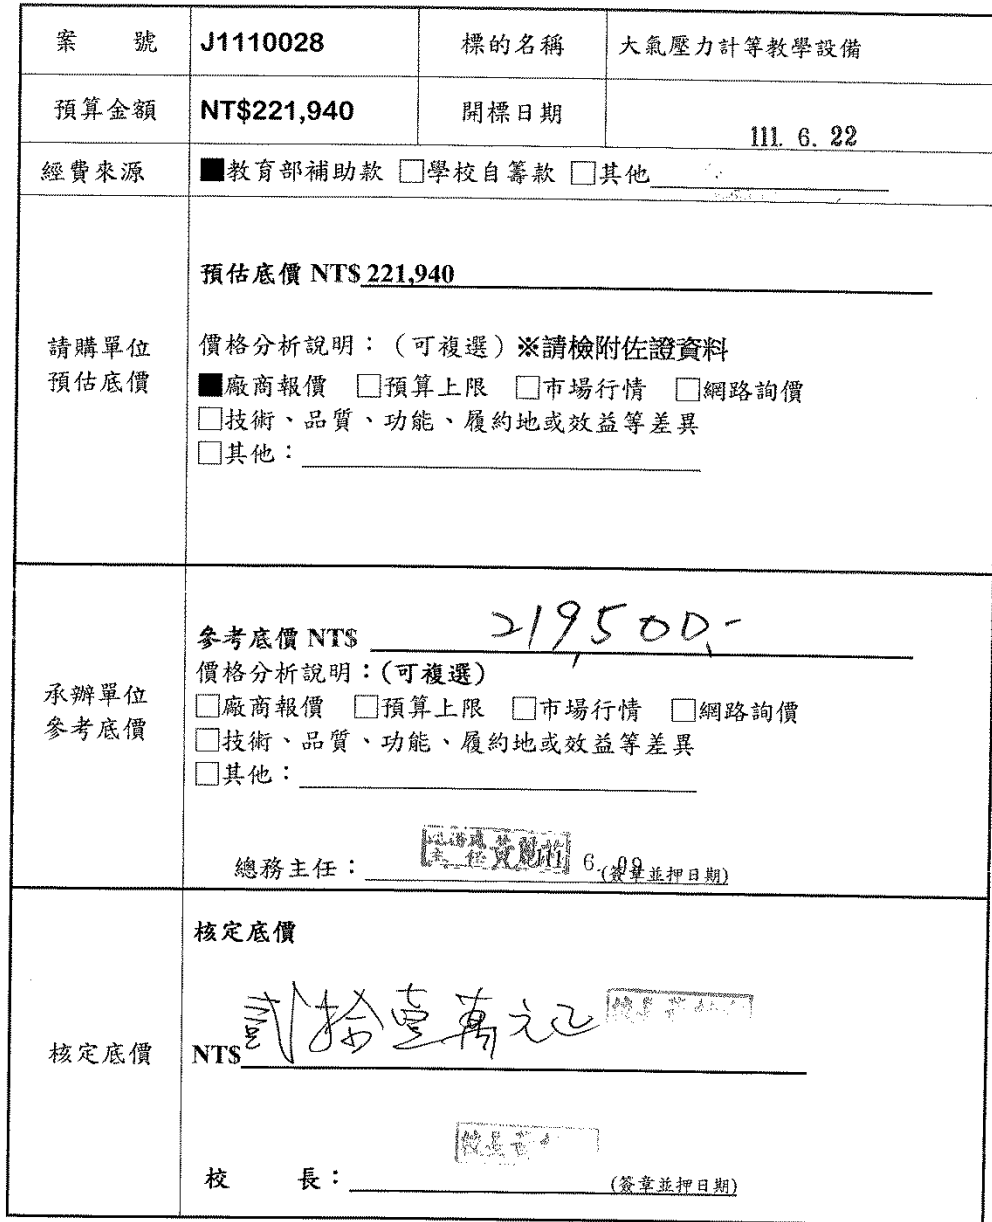 案　　號 J1110028 標的名稱 大氣壓力計等教學設備
預算金額 NT$221,940 開標日期 111. 6. 22
經費來源 ■教育部補助款 □學校自籌款 □其他
預估底價 NT$ 221,940
請購單位
預估底價
價格分析說明：（可複選）※請檢附佐證資料
■廠商報價 □預算上限 □市場行情 □網路詢價
□技術、品質、功能、履約地或效益等差異
□其他：
承辦單位
參考底價
參考底價 NT$ 219,500,-
價格分析說明：(可複選)
□廠商報價 □預算上限 □市場行情 □網路詢價
□技術、品質、功能、履約地或效益等差異
□其他：
總務主任： 111 6. 09 (簽章並押日期)
核定底價
核定底價
NT$ 貳拾壹萬元正
校　　長： (簽章並押日期)